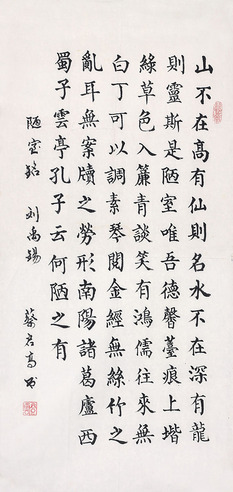 山不在高有仙則名水不在深有龍
則靈斯是陋室唯吾德馨薹痕上堦
綠草色入簾青談笑有鴻儒往來無
白丁可以調素琴閱金經無絲竹之
亂耳無案牘之勞形南陽諸葛廬西
蜀子雲亭孔子云何陋之有
陋室銘 刘禹錫 蔡高书